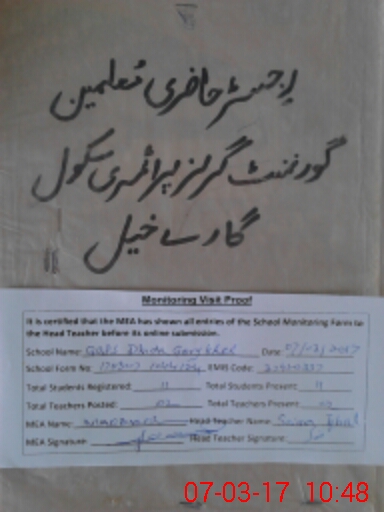 رجسٹر حاضری معلمین
گورنمنٹ گرلز پرائمری سکول
گارے خیل
Monitoring Visit Proof
It is certified that the MEA has shown all entries of the School Monitoring Form to
the Head Teacher before its online submission.
School Name: GGPS Garykhel Date: 07/03/2017
School Form No: EMIS Code:
Total Students Registered: 11 Total Students Present: 11
Total Teachers Posted: 02 Total Teachers Present: 02
MEA Name: Head Teacher Name:
MEA Signature: Head Teacher Signature:
07-03-17 10:48